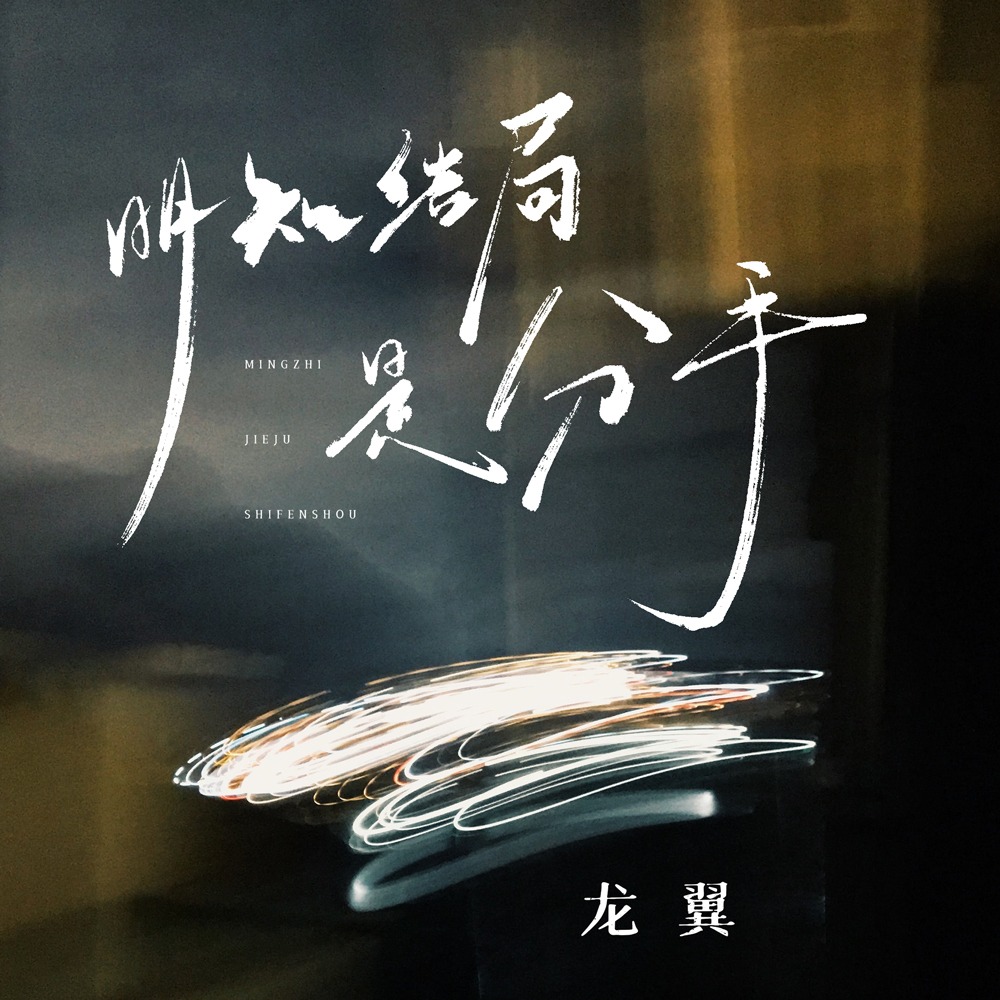 明知结局
是分手
MINGZHI
JIEJU
SHIFENSHOU
龙翼